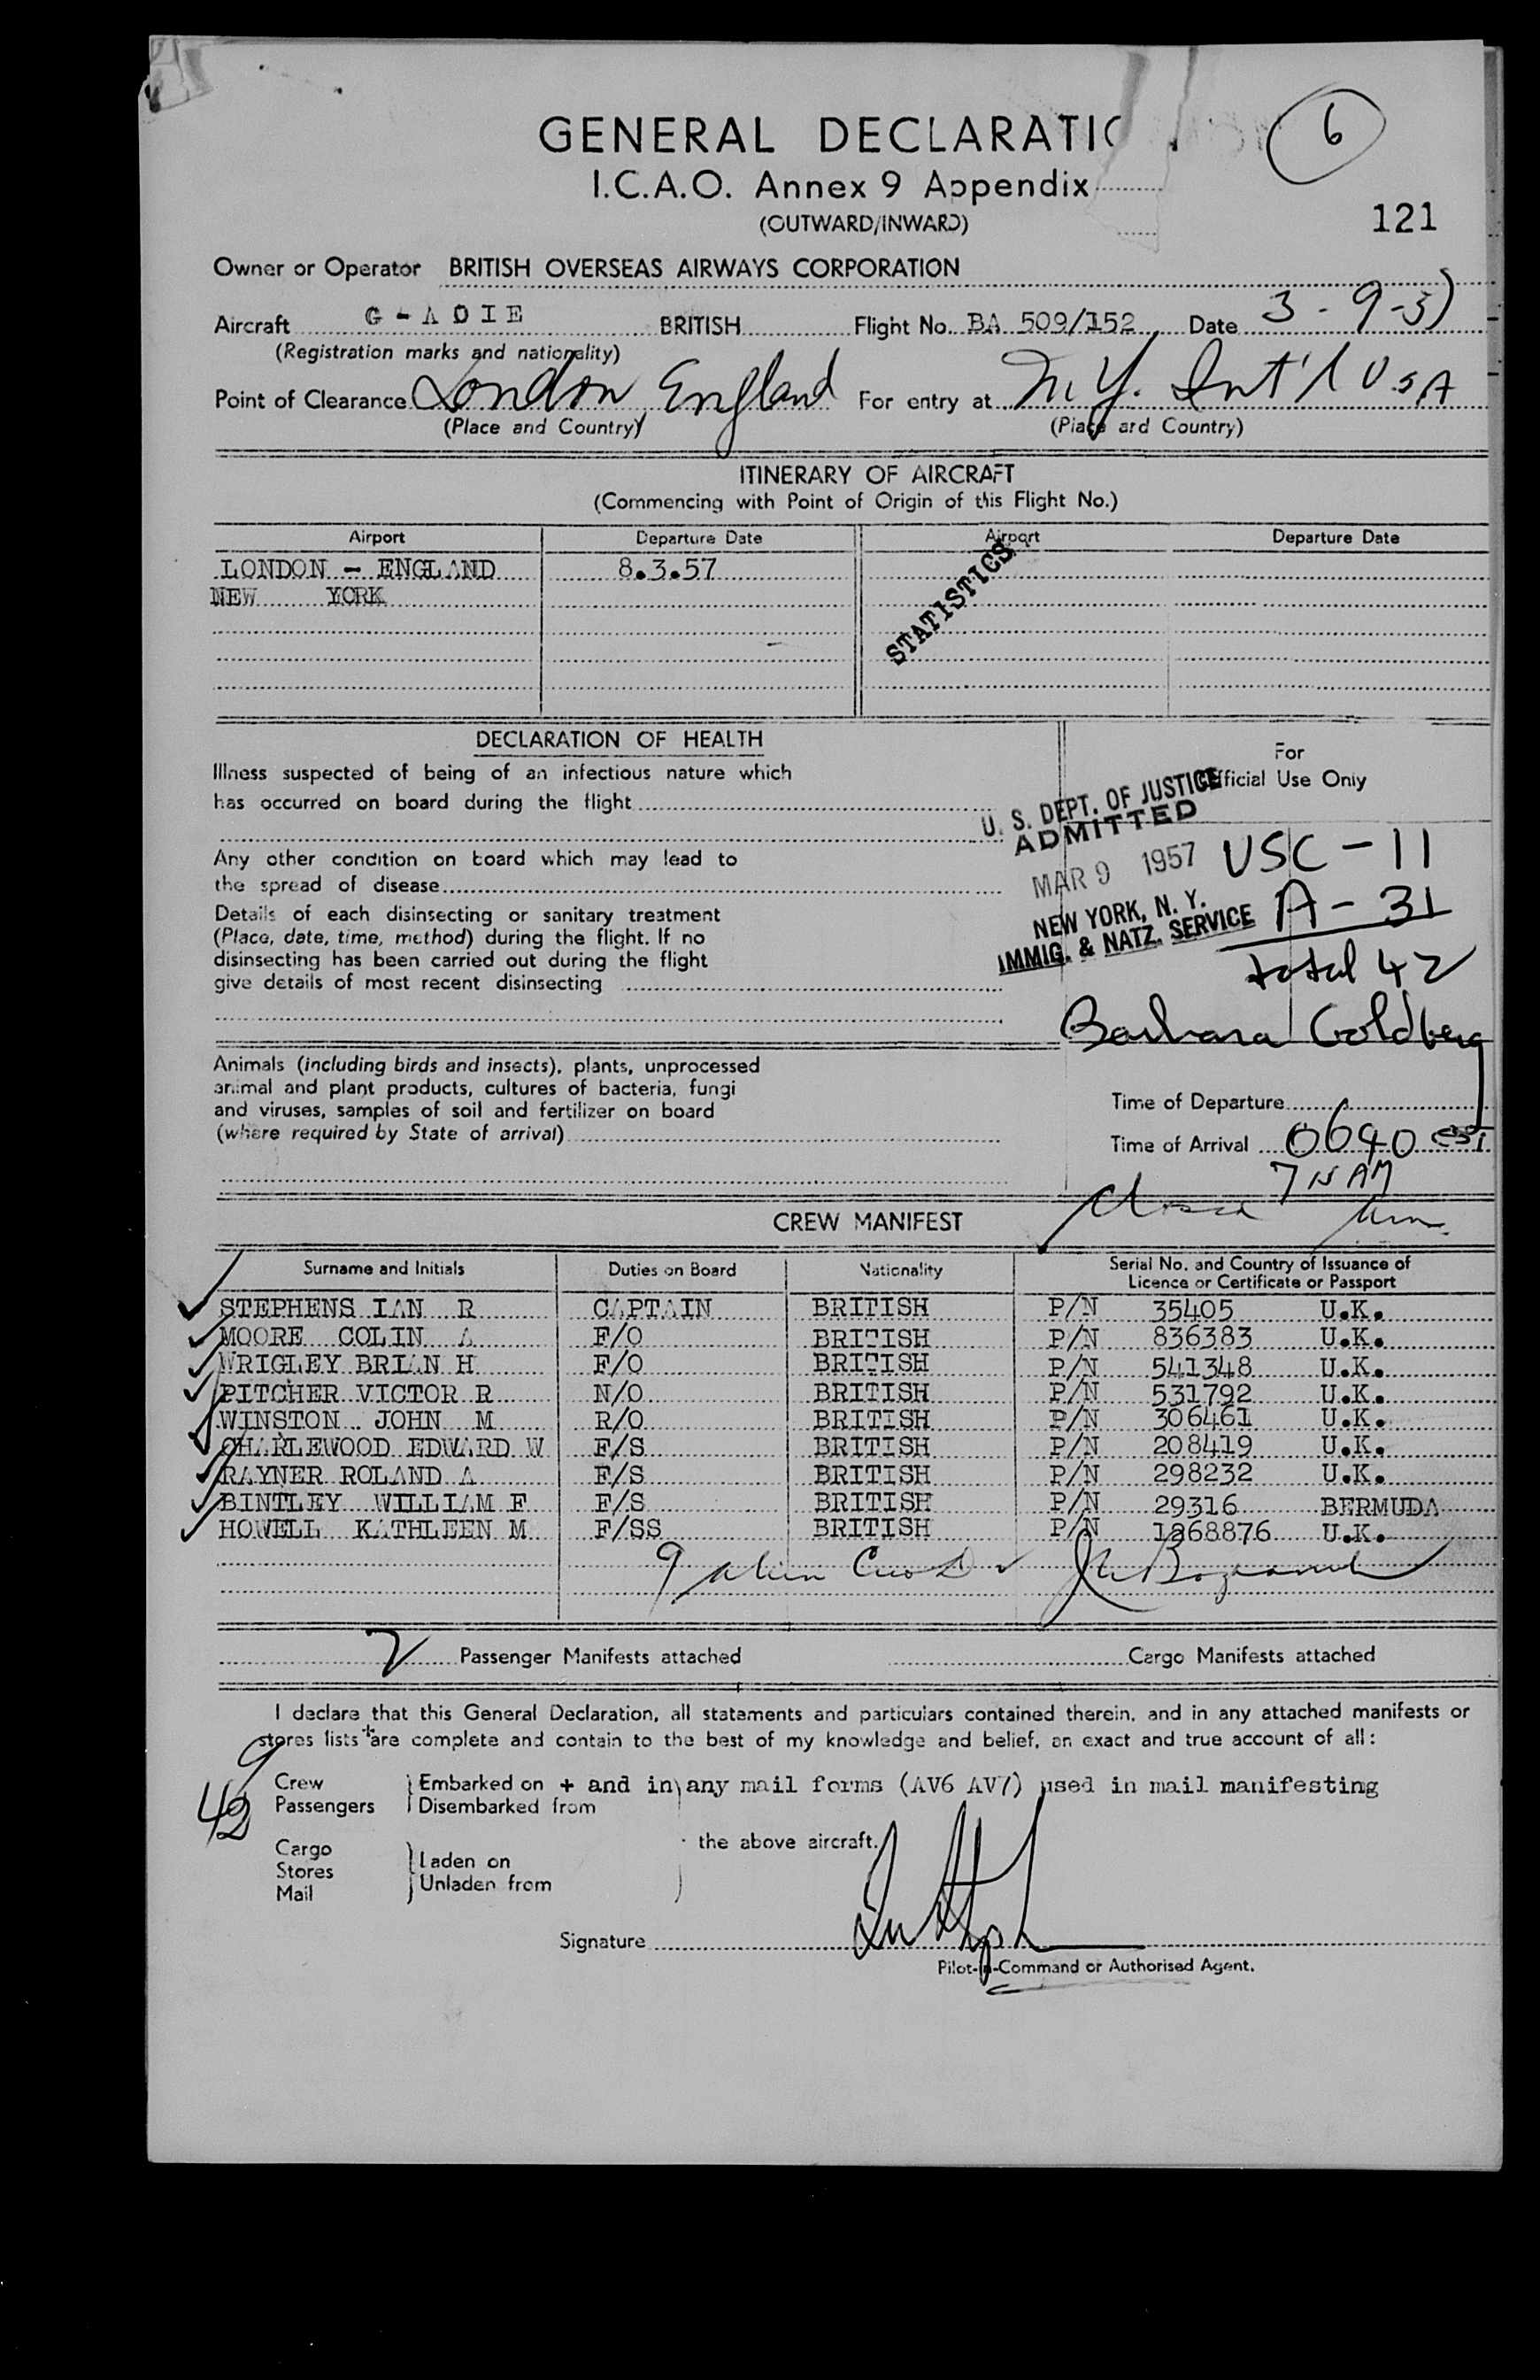 6
GENERAL DECLARATIO
I.C.A.O. Annex 9 Appendix
(OUTWARD/INWARD)
121
Owner or Operator BRITISH OVERSEAS AIRWAYS CORPORATION
Aircraft G-AOIE BRITISH Flight No. BA 509/152 Date 3-9-57
(Registration marks and nationality)
Point of Clearance London, England For entry at N.Y. Int'l USA
(Place and Country) (Place and Country)
ITINERARY OF AIRCRAFT
(Commencing with Point of Origin of this Flight No.)
Airport Departure Date Airport Departure Date
LONDON - ENGLAND 8.3.57
NEW YORK
STATISTICS
DECLARATION OF HEALTH
For
Official Use Only
Illness suspected of being of an infectious nature which
has occurred on board during the flight
U. S. DEPT. OF JUSTICE
ADMITTED
MAR 9 1957
NEW YORK, N. Y.
IMMIG. & NATZ. SERVICE
USC - 11
A - 31
total 42
Barbara Goldberg
Any other condition on board which may lead to
the spread of disease
Details of each disinsecting or sanitary treatment
(Place, date, time, method) during the flight. If no
disinsecting has been carried out during the flight
give details of most recent disinsecting
Animals (including birds and insects), plants, unprocessed
animal and plant products, cultures of bacteria, fungi
and viruses, samples of soil and fertilizer on board
(where required by State of arrival)
Time of Departure
Time of Arrival 0640 EST
7 15 AM
CREW MANIFEST
Surname and Initials Duties on Board Nationality Serial No. and Country of Issuance of
Licence or Certificate or Passport
STEPHENS IAN R CAPTAIN BRITISH P/N 35405 U.K.
MOORE COLIN A F/O BRITISH P/N 836383 U.K.
WRIGLEY BRIAN H F/O BRITISH P/N 541348 U.K.
PITCHER VICTOR R N/O BRITISH P/N 531792 U.K.
WINSTON JOHN M R/O BRITISH P/N 306461 U.K.
CHARLEWOOD EDWARD W F/S BRITISH P/N 208419 U.K.
RAYNER ROLAND A F/S BRITISH P/N 298232 U.K.
BINTLEY WILLIAM F F/S BRITISH P/N 29316 BERMUDA
HOWELL KATHLEEN M F/SS BRITISH P/N 1268876 U.K.
9 alien
2 Passenger Manifests attached Cargo Manifests attached
I declare that this General Declaration, all statements and particulars contained therein, and in any attached manifests or
stores lists + are complete and contain to the best of my knowledge and belief, an exact and true account of all:
9 Crew Embarked on + and in any mail forms (AV6 AV7) used in mail manifesting
42 Passengers Disembarked from
the above aircraft.
Cargo
Stores Laden on
Mail Unladen from
Signature
Pilot-in-Command or Authorised Agent.